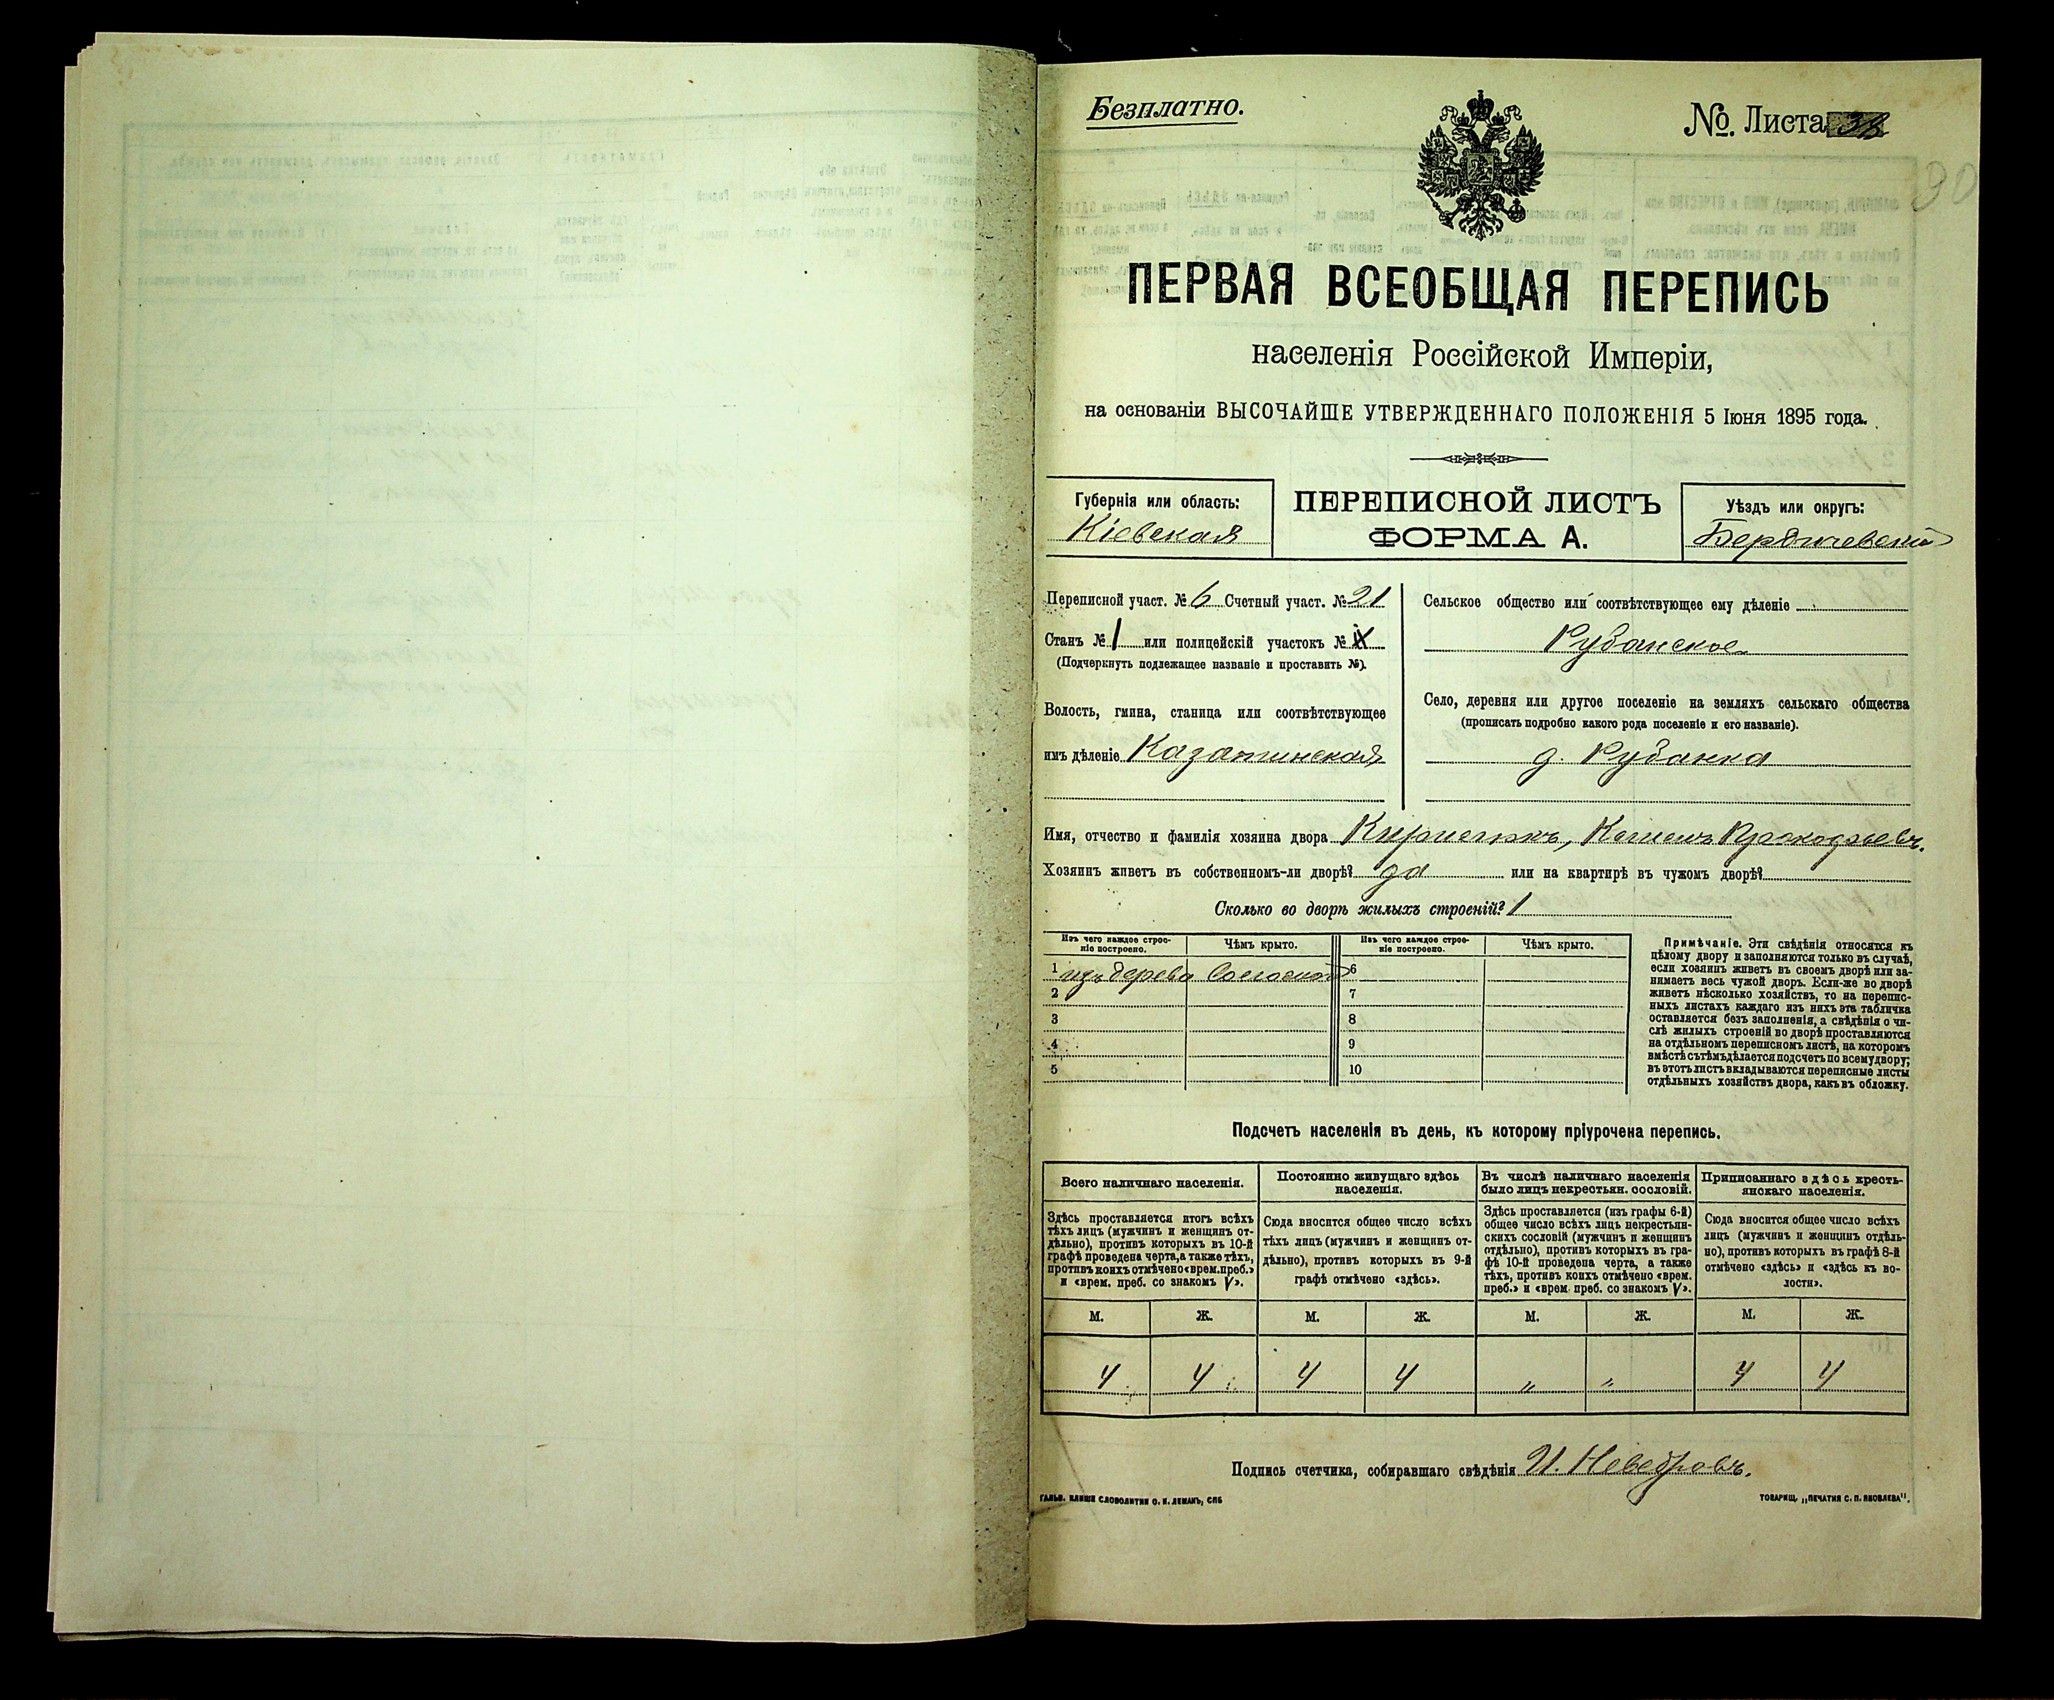 Безплатно.
№ Листа
90
ПЕРВАЯ ВСЕОБЩАЯ ПЕРЕПИСЬ
населенія Россійской Имперіи,
на основаніи ВЫСОЧАЙШЕ УТВЕРЖДЕННАГО ПОЛОЖЕНІЯ 5 Іюня 1895 года.
Губернія или область:
Кіевская
ПЕРЕПИСНОЙ ЛИСТЪ
ФОРМА А.
Уѣздъ или округъ:
Бердичевскій
Переписной участ. № 6 Счетный участ. № 21
Станъ № 1 или полицейскій участокъ №
(Подчеркнуть подлежащее названіе и проставить №).
Волость, гмина, станица или соотвѣтствующее
имъ дѣленіе Казатинская
Сельское общество или соотвѣтствующее ему дѣленіе
Рубанское
Село, деревня или другое поселеніе на земляхъ сельскаго общества
(прописать подробно какого рода поселеніе и его названіе).
д. Рубанка
Имя, отчество и фамилія хозяина двора Прокофьевъ.
Хозяинъ живетъ въ собственномъ-ли дворѣ? да или на квартирѣ въ чужомъ дворѣ?
Сколько во дворѣ жилыхъ строеній? 1
Изъ чего каждое строе-
ніе построено.
Чѣмъ крыто.
Изъ чего каждое строе-
ніе построено.
Чѣмъ крыто.
1 изъ дерева Соломой 6
2 7
3 8
4 9
5 10
Примѣчаніе. Эти свѣдѣнія относятся къ
цѣлому двору и заполняются только въ случаѣ,
если хозяинъ живетъ въ своемъ дворѣ или за-
нимаетъ весь чужой дворъ. Если-же во дворѣ
живетъ нѣсколько хозяйствъ, то на перепис-
ныхъ листахъ каждаго изъ нихъ эта табличка
оставляется безъ заполненія, а свѣдѣнія о чи-
слѣ жилыхъ строеній во дворѣ проставляются
на отдѣльномъ переписномъ листѣ, на которомъ
вмѣстѣ съ тѣмъ дѣлается подсчетъ по всему двору;
въ этотъ листъ вкладываются переписные листы
отдѣльныхъ хозяйствъ двора, какъ въ обложку.
Подсчетъ населенія въ день, къ которому пріурочена перепись.
Всего наличнаго населенія.
Здѣсь проставляется итогъ всѣхъ
тѣхъ лицъ (мужчинъ и женщинъ от-
дѣльно), противъ которыхъ въ 10-й
графѣ проведена черта, а также тѣхъ,
противъ коихъ отмѣчено «врем. преб.»
и «врем. преб. со знакомъ V».
Постоянно живущаго здѣсь
населенія.
Сюда вносится общее число всѣхъ
тѣхъ лицъ (мужчинъ и женщинъ от-
дѣльно), противъ которыхъ въ 9-й
графѣ отмѣчено «здѣсь».
Въ числѣ наличнаго населенія
было лицъ некрестьян. сословій.
Здѣсь проставляется (изъ графы 6-й)
общее число всѣхъ лицъ некрестьян-
скихъ сословій (мужчинъ и женщинъ
отдѣльно), противъ которыхъ въ гра-
фѣ 10-й проведена черта, а также
тѣхъ, противъ коихъ отмѣчено «врем.
преб.» и «врем. преб. со знакомъ V».
Приписаннаго здѣсь кресть-
янскаго населенія.
Сюда вносится общее число всѣхъ
лицъ (мужчинъ и женщинъ отдѣль-
но), противъ которыхъ въ графѣ 8-й
отмѣчено «здѣсь» и «здѣсь къ во-
лости».
М. Ж. М. Ж. М. Ж. М. Ж.
4 4 4 4 " " 4 4
Подпись счетчика, собиравшаго свѣдѣнія
ГАЛЬВ. КЛИШЕ СЛОВОЛИТНИ О. И. ЛЕМАНЪ, СПБ
ТОВАРИЩ. „ПЕЧАТНЯ С. П. ЯКОВЛЕВА".